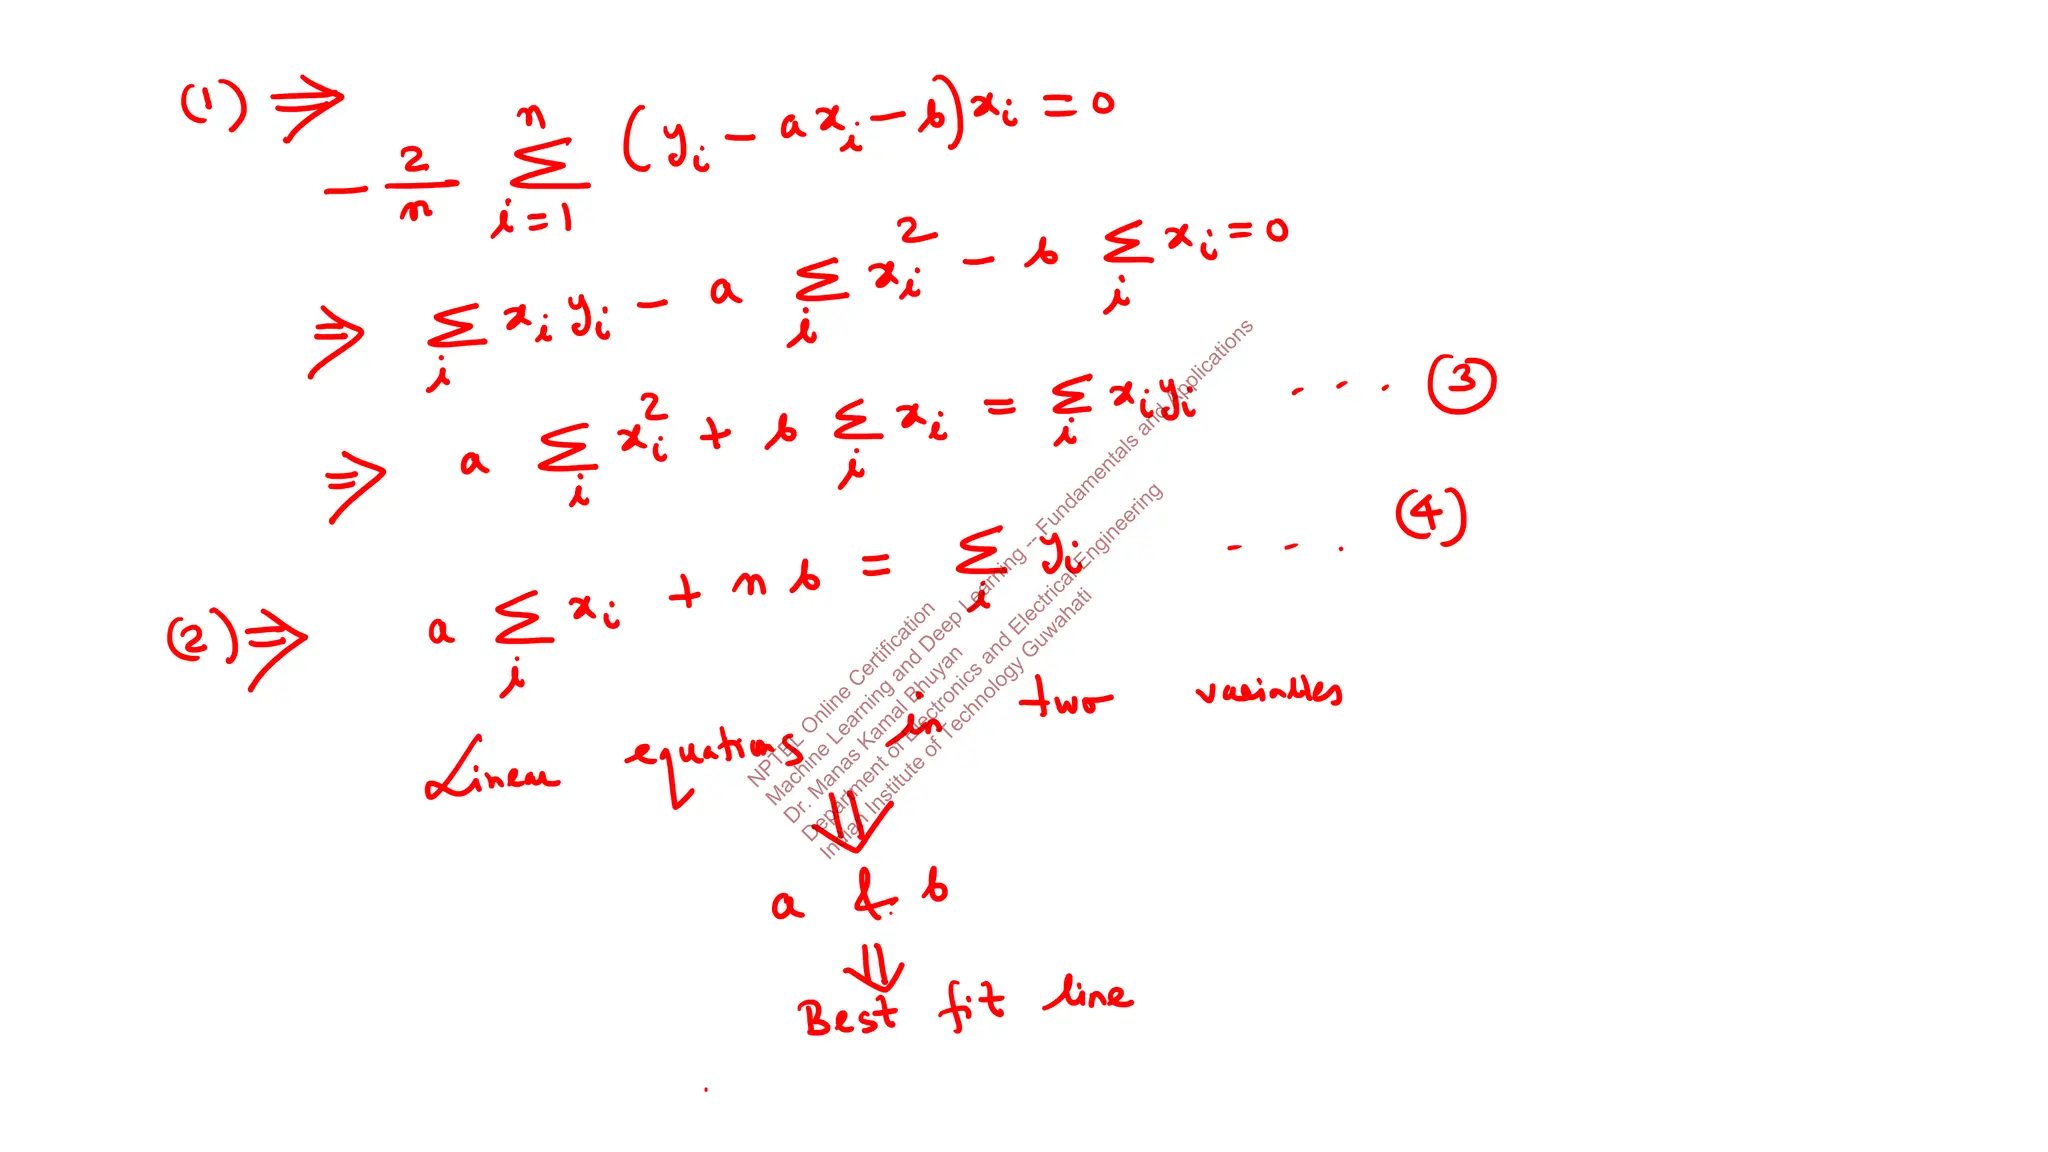 (1) ⇒
- 2/n Σ_{i=1}^{n} (y_i - a x_i - b) x_i = 0
⇒ Σ_i x_i y_i - a Σ_i x_i^2 - b Σ_i x_i = 0
⇒ a Σ_i x_i^2 + b Σ_i x_i = Σ_i x_i y_i ... (3)
(2) ⇒ a Σ_i x_i + n b = Σ_i y_i ... (4)
Linear equations in two variables
⇓
a & b
⇓
Best fit line
NPTEL Online Certification
Machine Learning and Deep Learning -- Fundamentals and Applications
Dr. Manas Kamal Bhuyan
Department of Electronics and Electrical Engineering
Indian Institute of Technology Guwahati